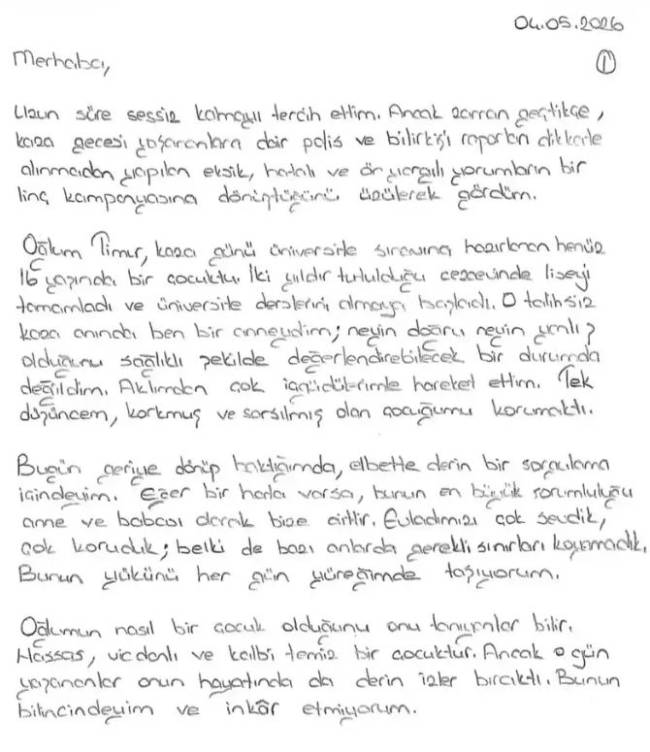 04.05.2026
Merhaba,
1
Uzun süre sessiz kalmayı tercih ettim. Ancak zaman geçtikçe,
kaza gecesi yaşananlara dair polis ve bilirkişi raporları dikkate
alınmadan yapılan eksik, hatalı ve ön yargılı yorumların bir
linç kampanyasına dönüştüğünü üzülerek gördüm.
Oğlum Timur, kaza günü üniversite sınavına hazırlanan henüz
16 yaşında bir çocuktu. İki yıldır tutulduğu cezaevinde liseyi
tamamladı ve üniversite derslerini almaya başladı. O talihsiz
kaza anında ben bir anneydim; neyin doğru neyin yanlış
olduğunu sağlıklı şekilde değerlendirebilecek bir durumda
değildim. Aklımdan çok içgüdülerimle hareket ettim. Tek
düşüncem, korkmuş ve sarsılmış olan çocuğumu korumaktı.
Bugün geriye dönüp baktığımda, elbette derin bir sorgulama
içindeyim. Eğer bir hata varsa, bunun en büyük sorumluluğu
anne ve babası olarak bize aittir. Evladımızı çok sevdik,
çok koruduk; belki de bazı anlarda gerekli sınırları koyamadık.
Bunun yükünü her gün yüreğimde taşıyorum.
Oğlumun nasıl bir çocuk olduğunu onu tanıyanlar bilir.
Hassas, vicdanlı ve kalbi temiz bir çocuktur. Ancak o gün
yaşananlar onun hayatında da derin izler bıraktı. Bunun
bilincindeyim ve inkâr etmiyorum.